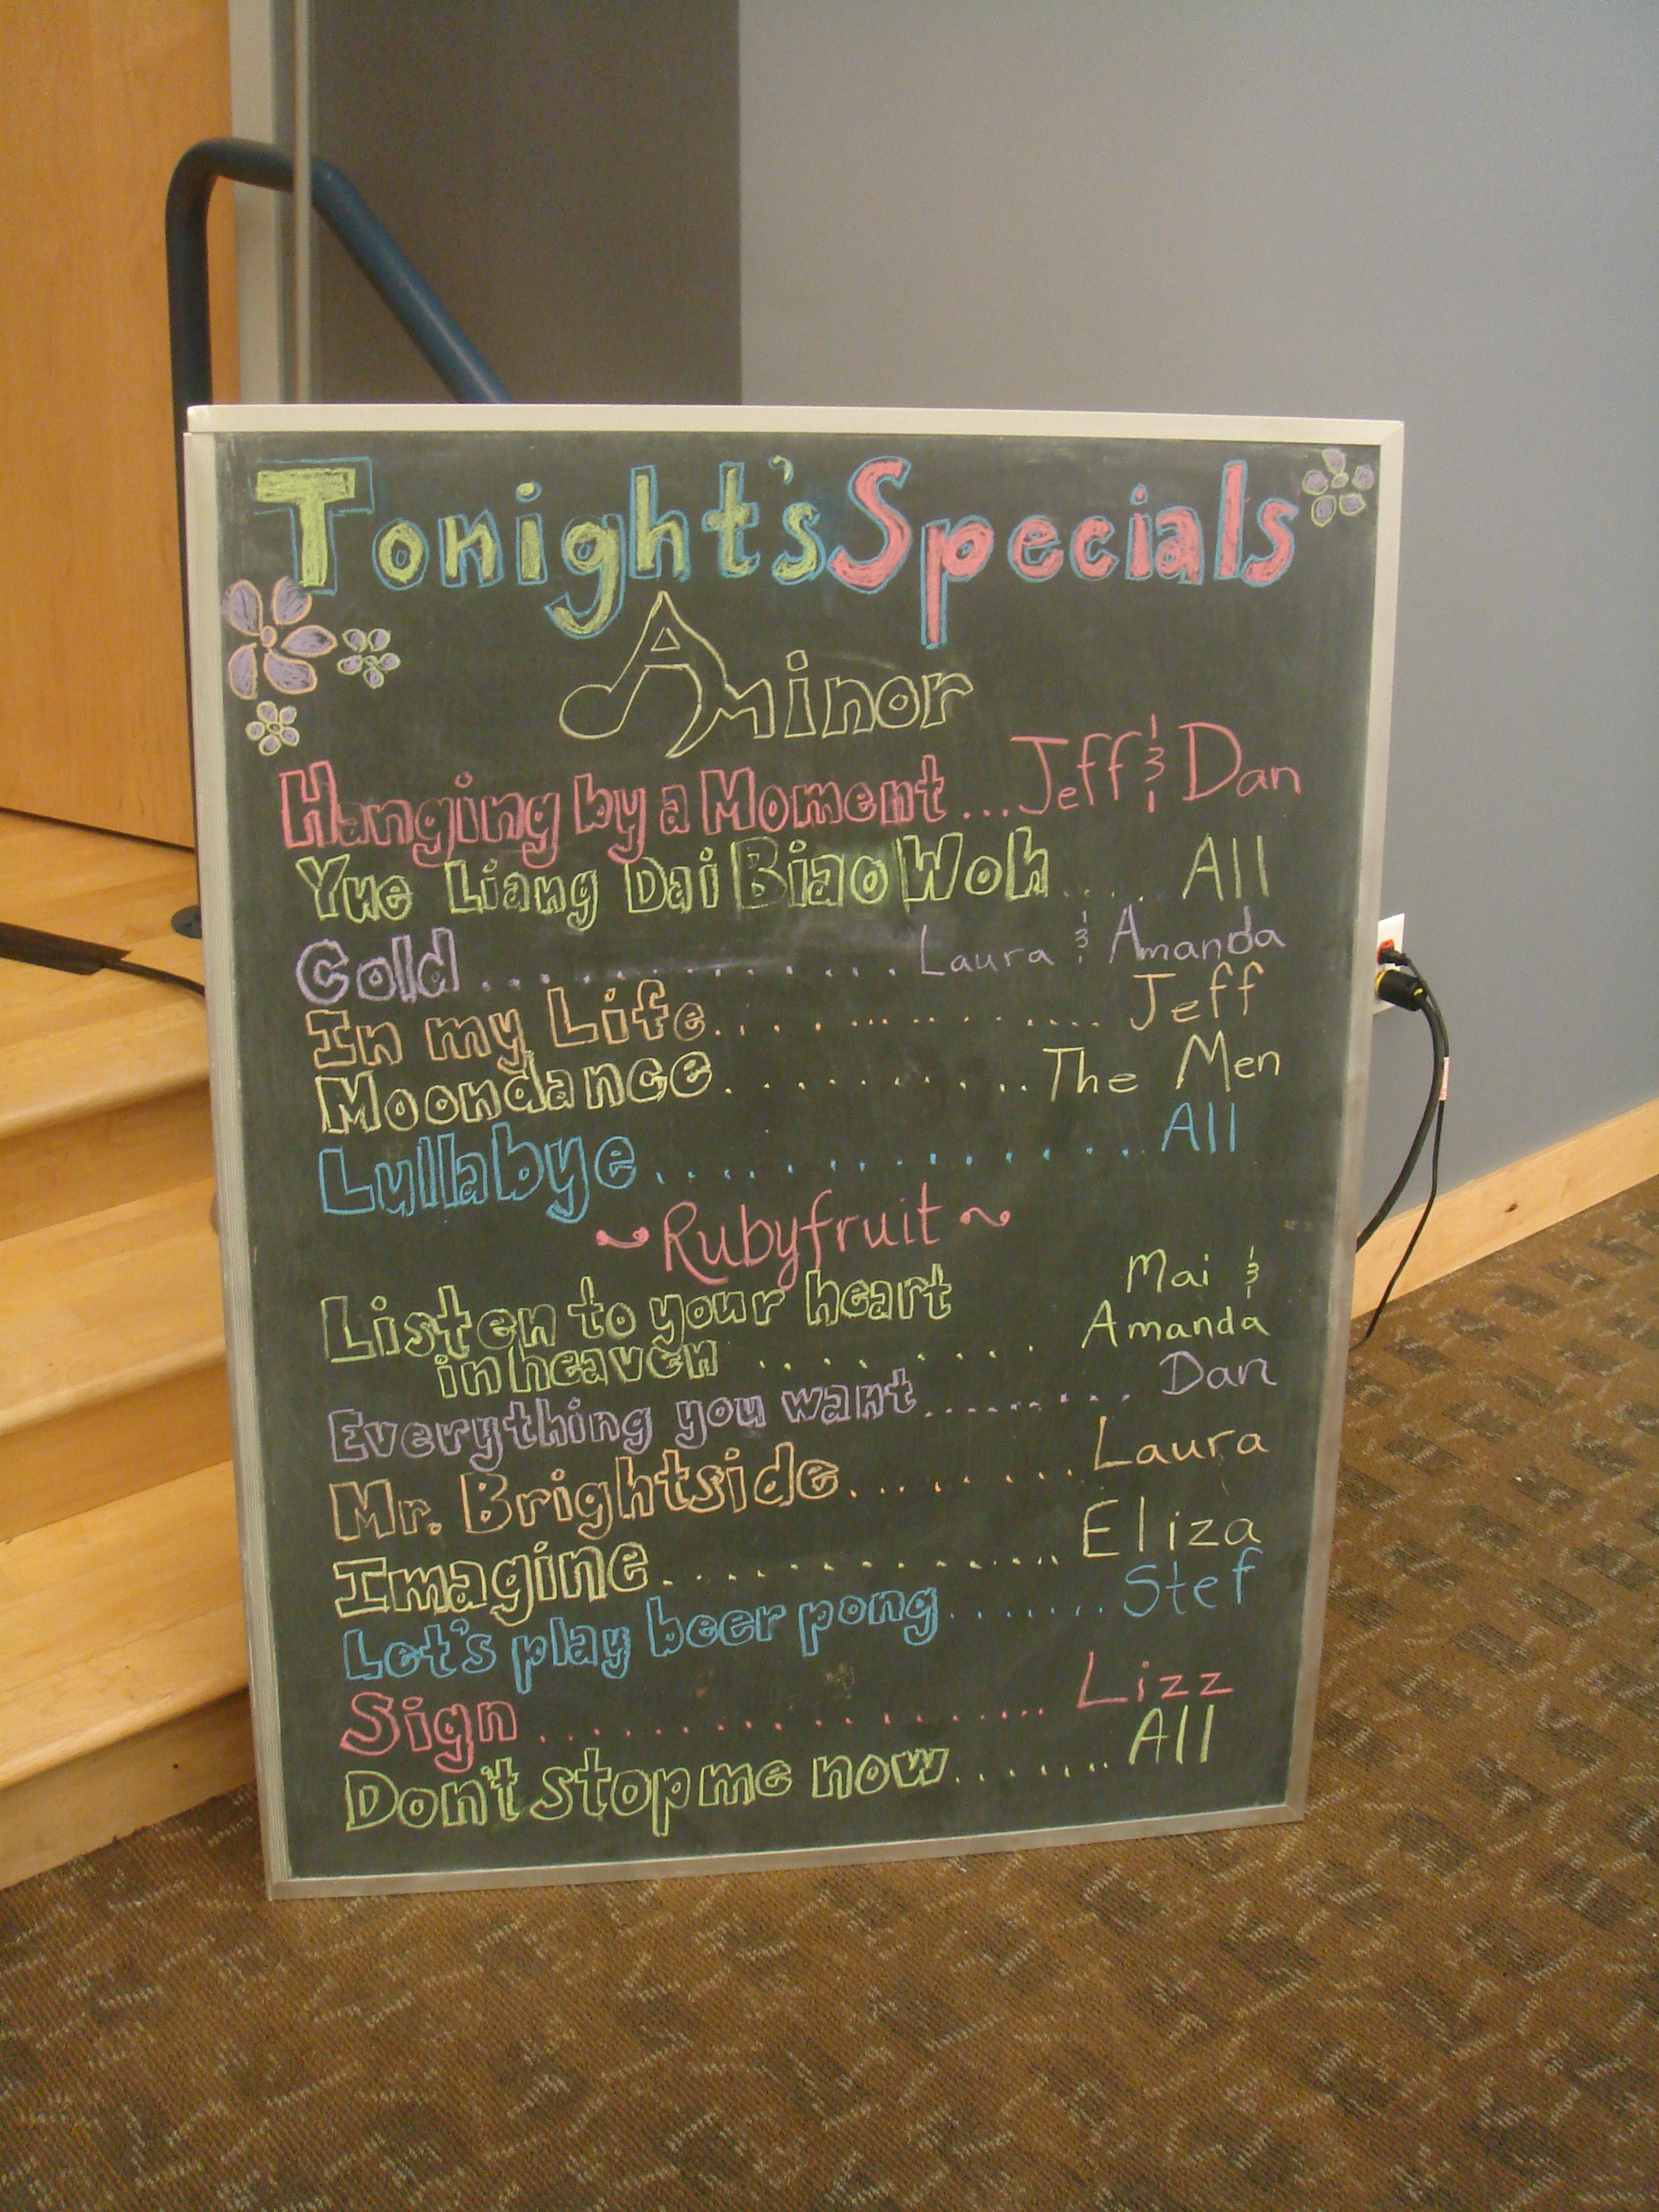 Tonight's Specials
A minor
Hanging by a Moment ... Jeff & Dan
Yue Liang Dai Biao Woh ..... All
Cold ............... Laura & Amanda
In my Life ............... Jeff
Moondance ............ The Men
Lullabye ................ All
~ Rubyfruit ~
Listen to your heart Mai &
in heaven .......... Amanda
Everything you want ......... Dan
Mr. Brightside ......... Laura
Imagine .............. Eliza
Let's play beer pong ....... Stef
Sign .................. Lizz
Don't stop me now ....... All